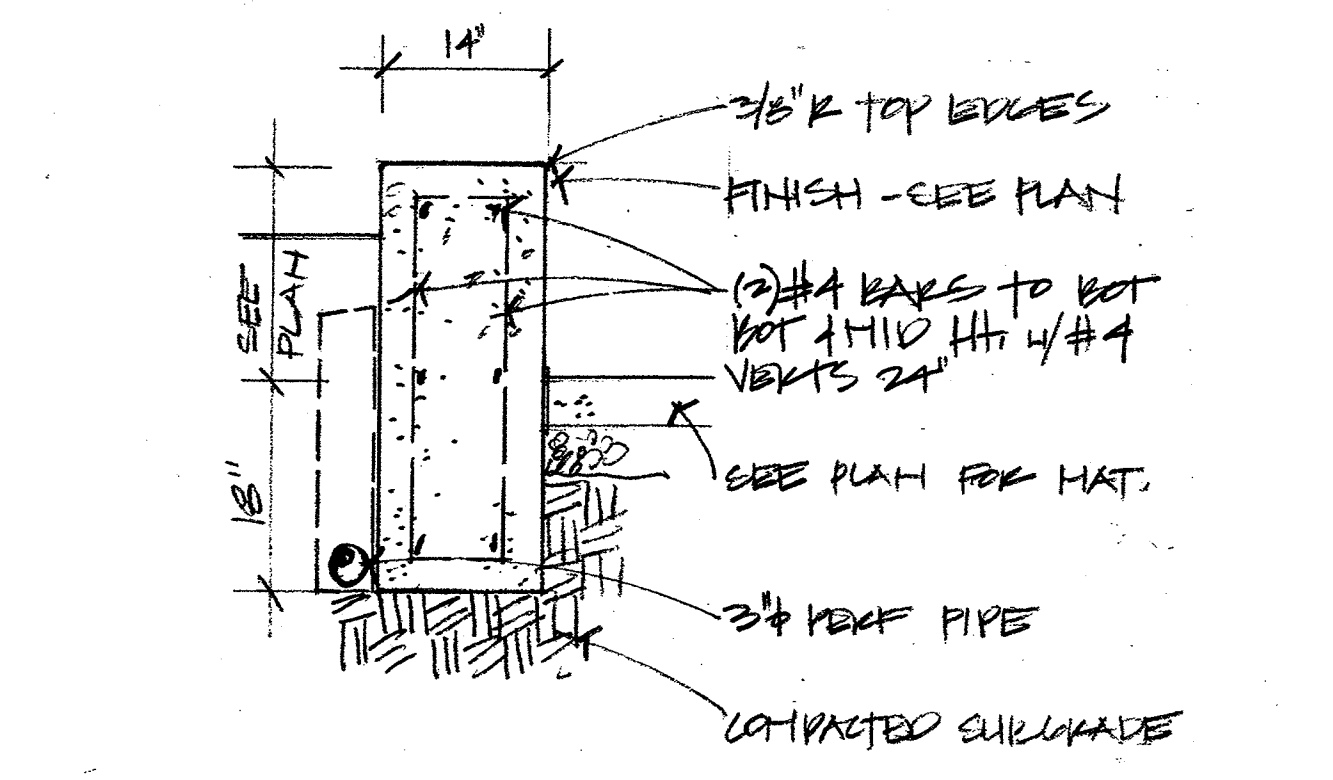 14"
3/8" R TOP EDGES
FINISH - SEE PLAN
(2) #4 BARS TO BOT
BOT & MID HT. W/ #4
VERTS 24"
SEE
PLAN
18"
SEE PLAN FOR MAT.
3"ϕ PERF PIPE
COMPACTED SUBGRADE